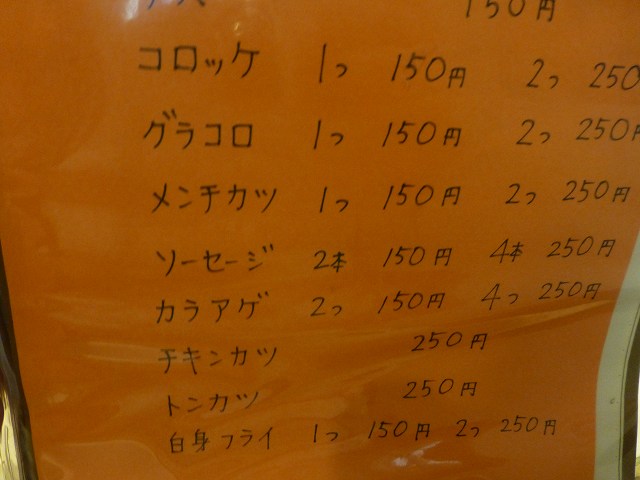 150円
コロッケ 1つ 150円 2つ 250
グラコロ 1つ 150円 2つ 250円
メンチカツ 1つ 150円 2つ 250円
ソーセージ 2本 150円 4本 250円
カラアゲ 2つ 150円 4つ 250円
チキンカツ 250円
トンカツ 250円
自身フライ 1つ 150円 2つ 250円